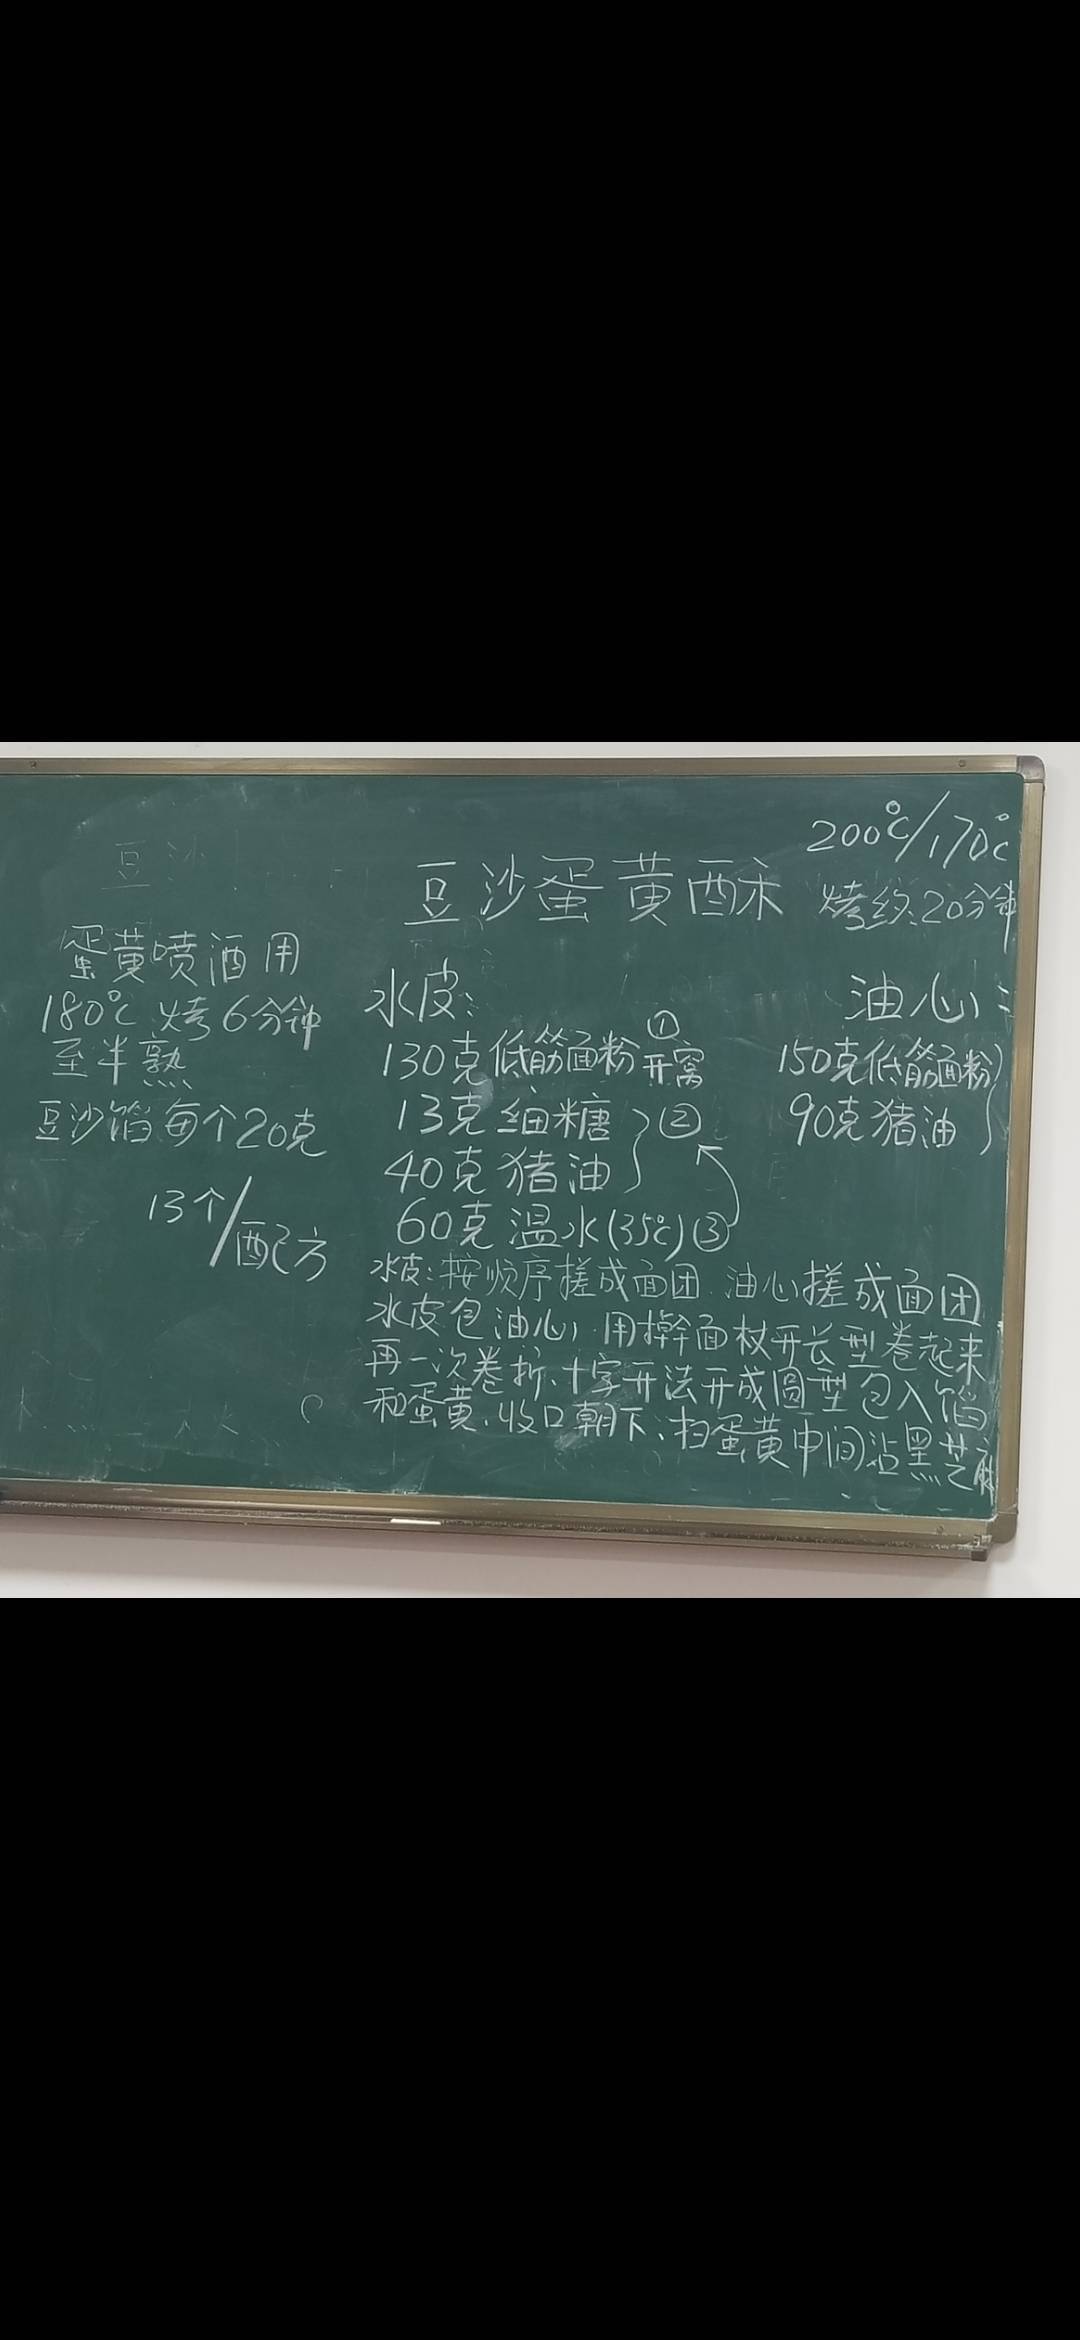 豆沙
200℃/170℃
豆沙蛋黄酥
烤约20分钟
蛋黄喷酒用
180℃烤6分钟
至半熟
豆沙馅每个20克
13个/配方
水皮:
130克低筋面粉 ①开窝
13克细糖 ②
40克猪油
60克温水(35℃)③
油心:
150克低筋面粉
90克猪油
水皮:按顺序搓成面团.油心搓成面团
水皮包油心,用擀面杖开长型卷起来
再一次卷折、十字开法开成圆型包入馅
和蛋黄、收口朝下、扫蛋黄中间沾黑芝麻